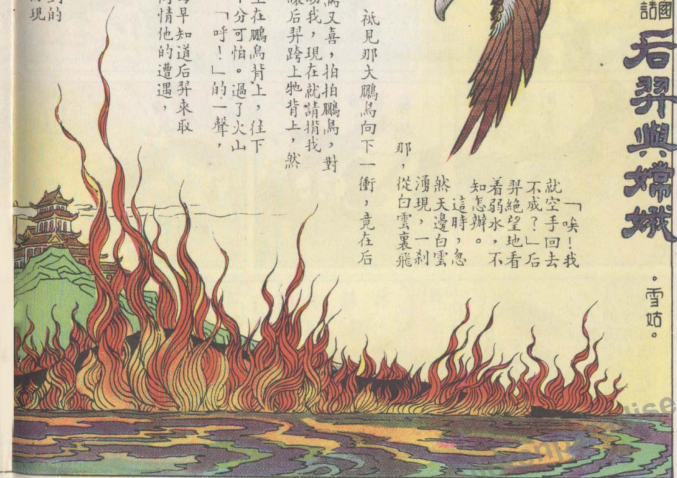 國
后羿與嫦娥
。雪姑。
「唉!我
就空手回去
不成?」后
羿絕望地看
着弱水,不
知怎辦。
這時,忽
然天邊白雲
湧現,一剎
那,從白雲裏飛
祇見那大鵬鳥向下一衝,竟在后
又喜,拍拍鵬鳥,對
我,現在就請揹我
讓后羿跨上牠背上,然
在鵬鳥背上,往下
分可怕。過了火山
「呼!」的一聲,
早知道后羿來取
情他的遭遇,
的
現